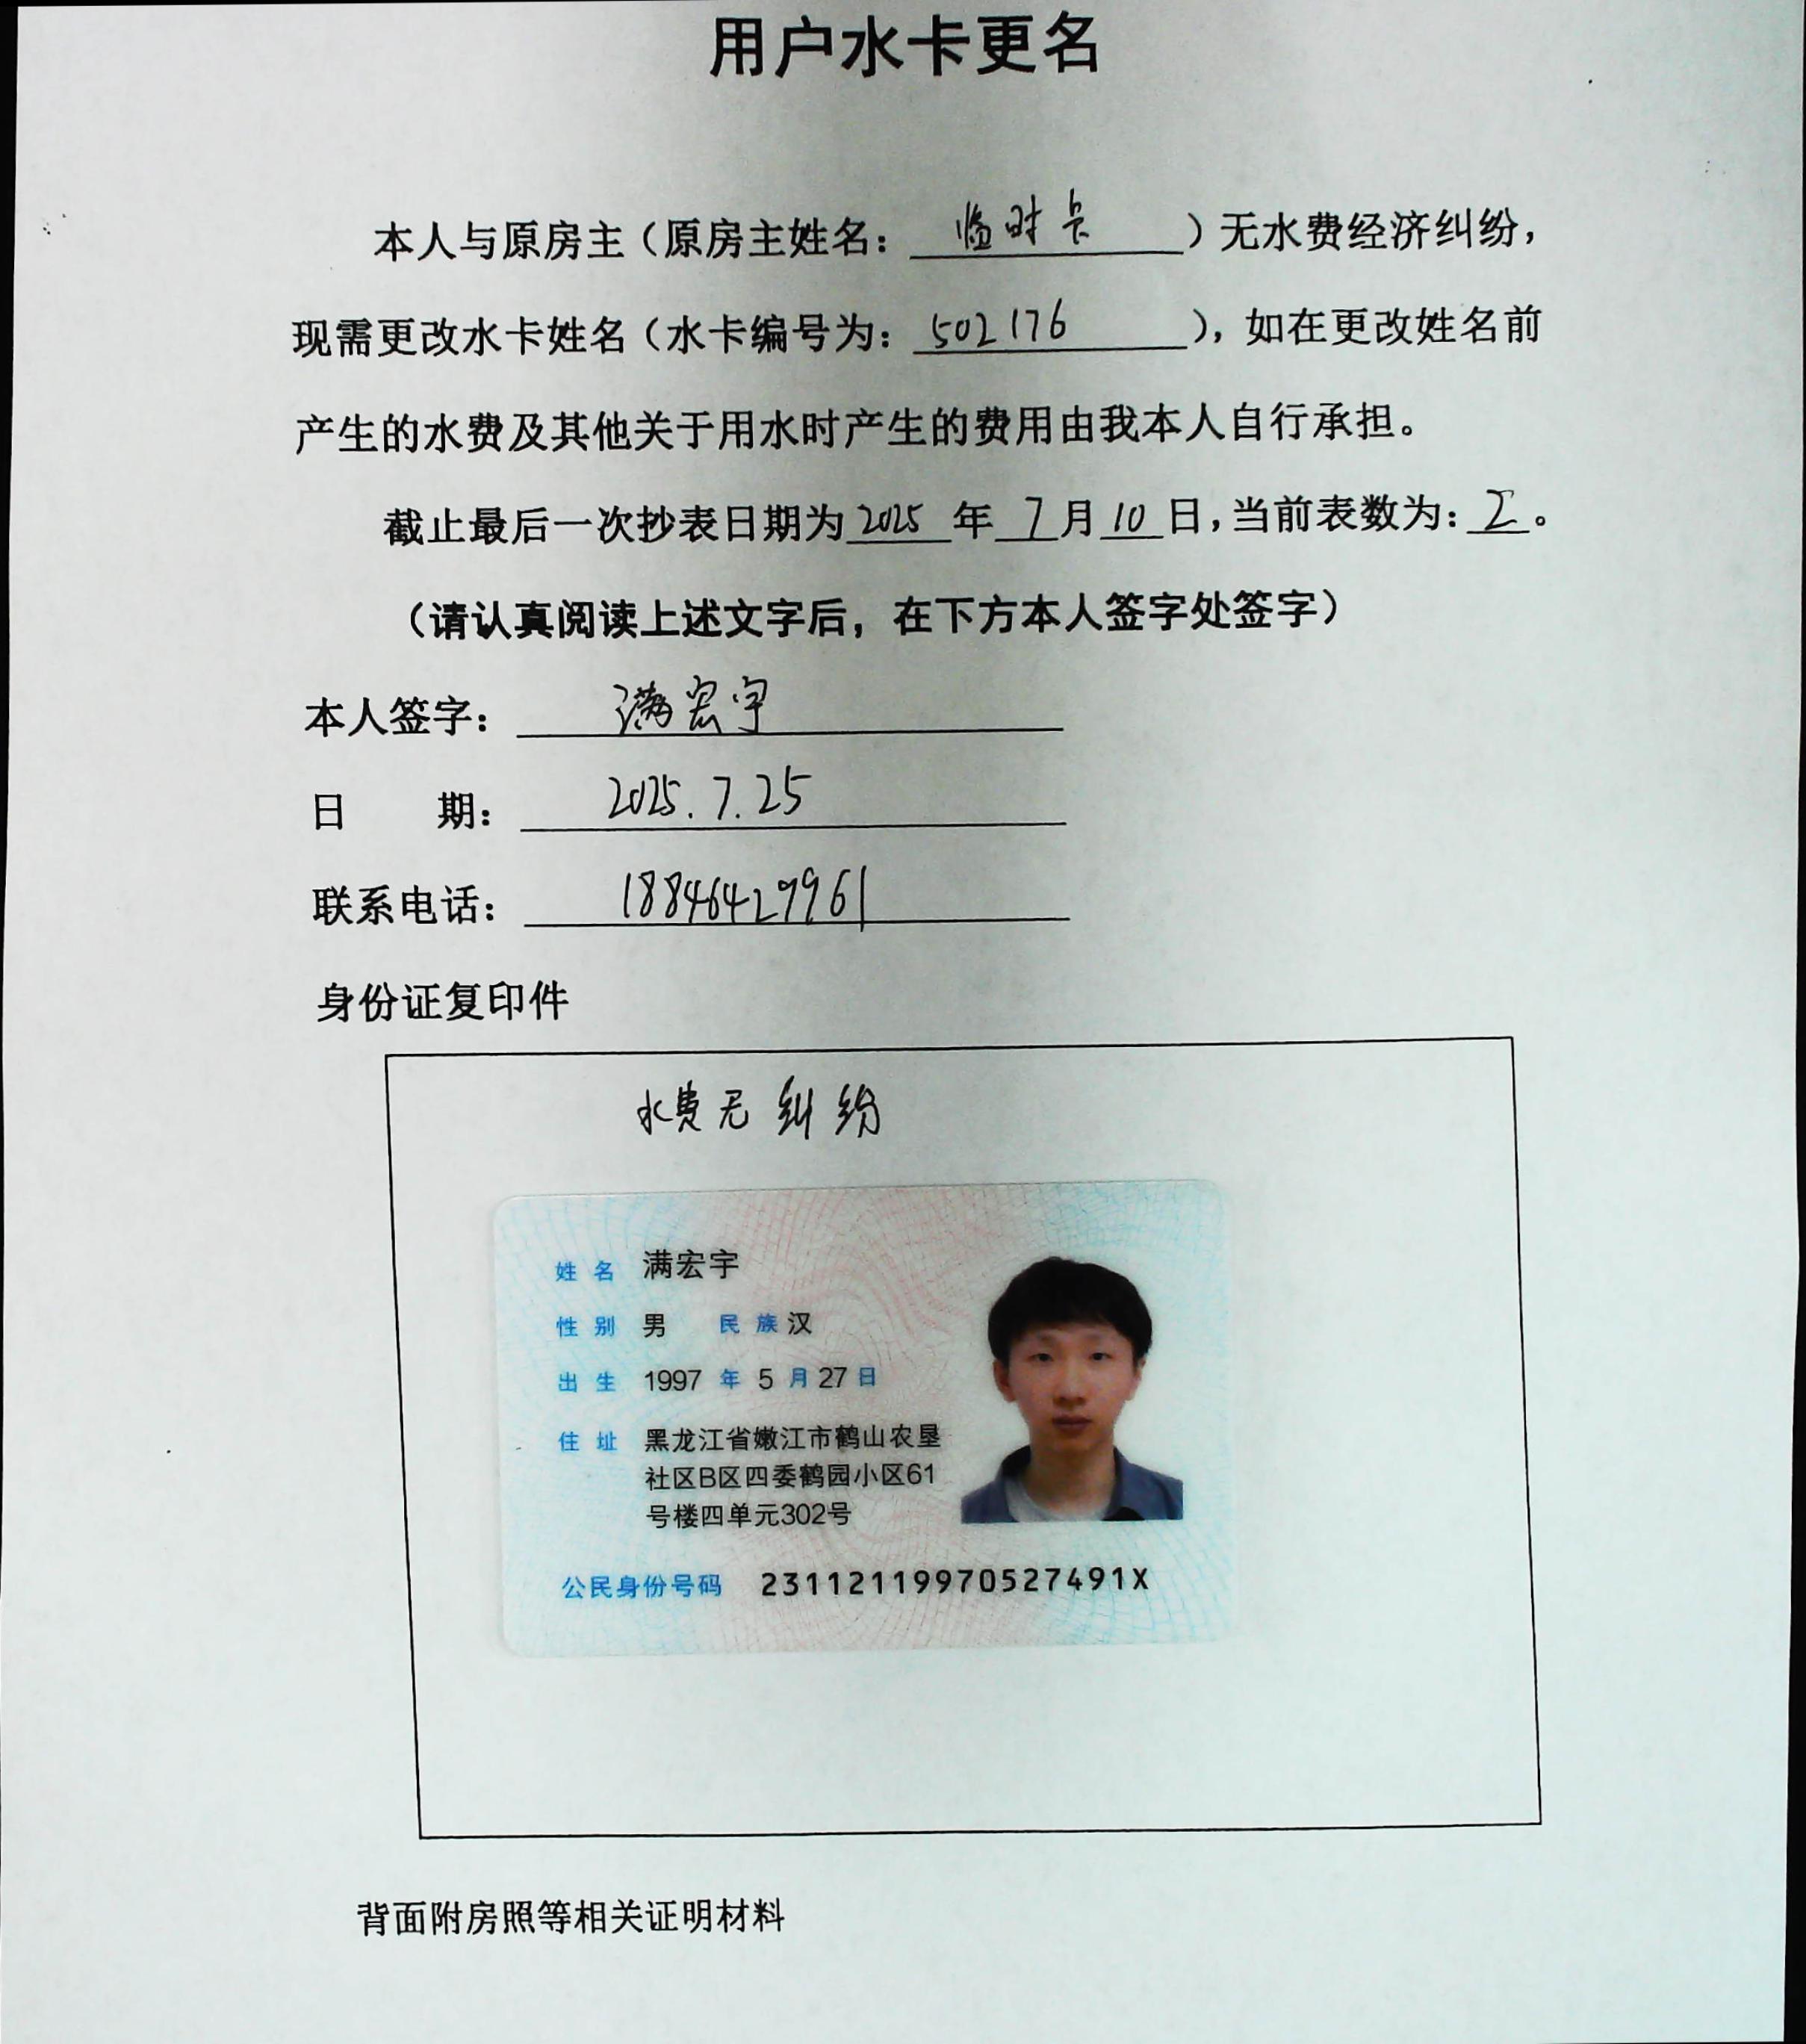 用户水卡更名
本人与原房主（原房主姓名：临时卡）无水费经济纠纷，
现需更改水卡姓名（水卡编号为：502176），如在更改姓名前
产生的水费及其他关于用水时产生的费用由我本人自行承担。
截止最后一次抄表日期为2025年7月10日，当前表数为：Σ。
（请认真阅读上述文字后，在下方本人签字处签字）
本人签字：满宏宇
日 期：2025.7.25
联系电话：18846429961
身份证复印件
水费无纠纷
姓名 满宏宇
性别 男 民族 汉
出生 1997年5月27日
住址 黑龙江省嫩江市鹤山农垦
社区B区四委鹤园小区61
号楼四单元302号
公民身份号码 23112119970527491X
背面附房照等相关证明材料